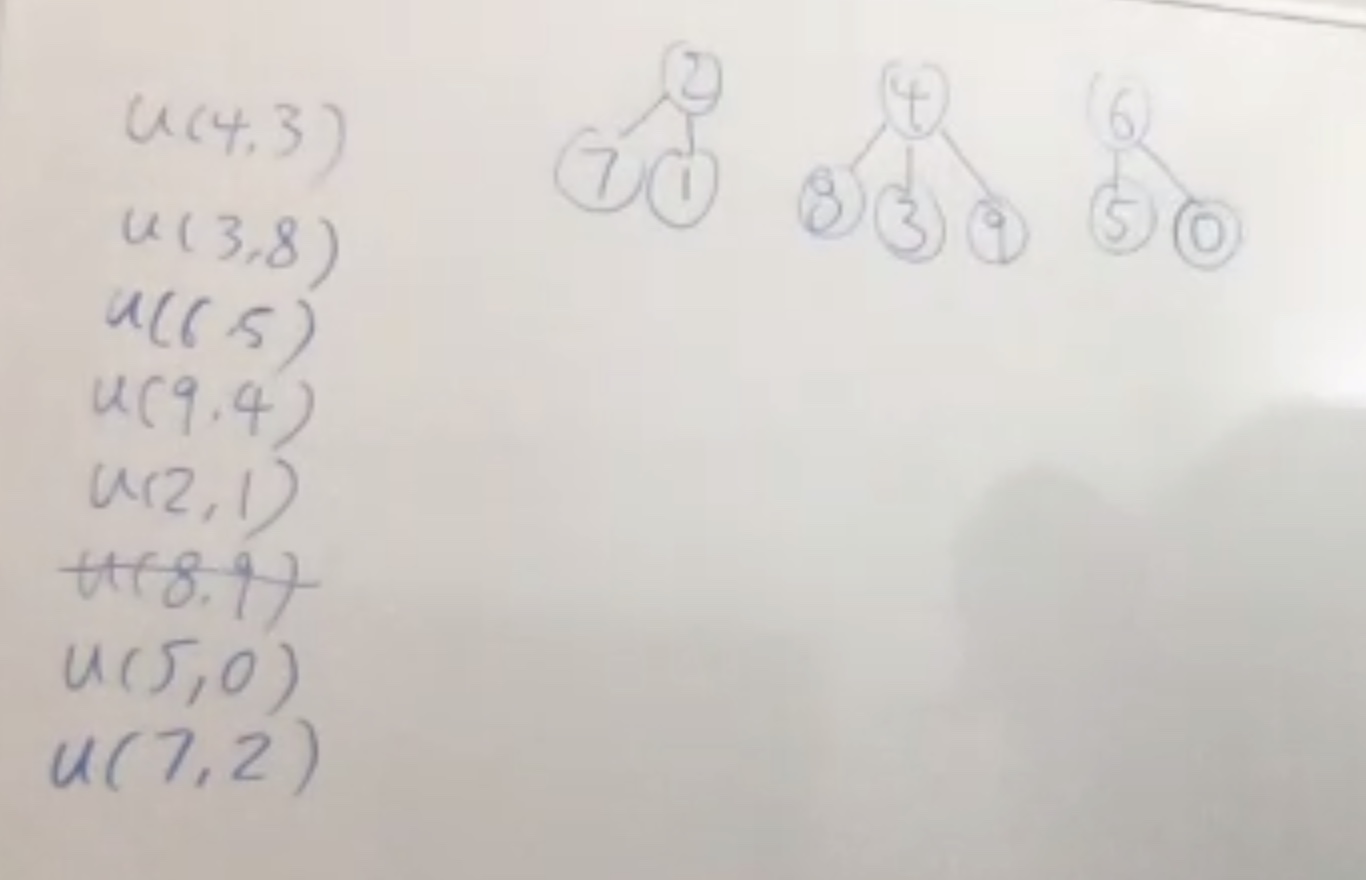 u(4,3)
u(3,8)
u(6 5)
u(9.4)
u(2,1)
u(8.9)
u(5,0)
u(7,2)
2
7 1
4
8 3 9
6
5 0